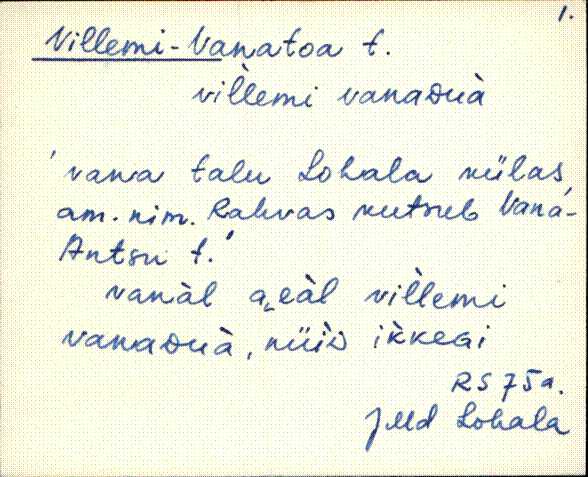 1.
Villemi-Vanatoa t.
vil̀lemi vanaᴅuà
'vana talu Lohala külas,
am. nim. Rahvas kutsub Vana-
Antsu t.'
vanàl aᴊeàl vil̀lemi
vanaᴅuà, nüìs ik̀keɢi
RS 75a.
Jmd Lohala